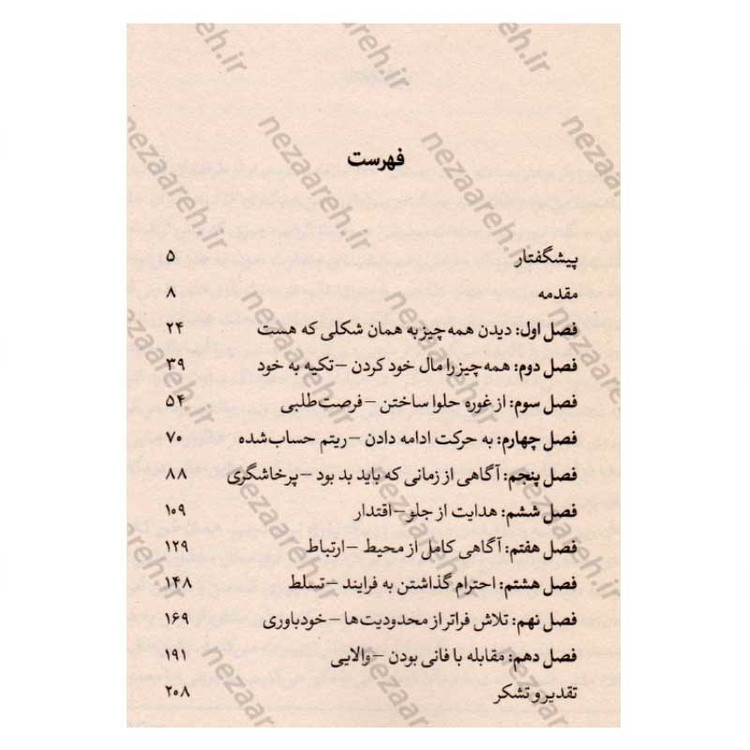 فهرست
پیشگفتار ۵
مقدمه ۸
فصل اول: دیدن همه‌چیز به همان شکلی که هست ۲۴
فصل دوم: همه‌چیز را مال خود کردن – تکیه به خود ۳۹
فصل سوم: از غوره حلوا ساختن – فرصت‌طلبی ۵۴
فصل چهارم: به حرکت ادامه دادن – ریتم حساب‌شده ۷۰
فصل پنجم: آگاهی از زمانی که باید بد بود – پرخاشگری ۸۸
فصل ششم: هدایت از جلو – اقتدار ۱۰۹
فصل هفتم: آگاهی کامل از محیط – ارتباط ۱۲۹
فصل هشتم: احترام گذاشتن به فرایند – تسلط ۱۴۸
فصل نهم: تلاش فراتر از محدودیت‌ها – خودباوری ۱۶۹
فصل دهم: مقابله با فانی بودن – والایی ۱۹۱
تقدیر و تشکر ۲۰۸
nezaareh.ir